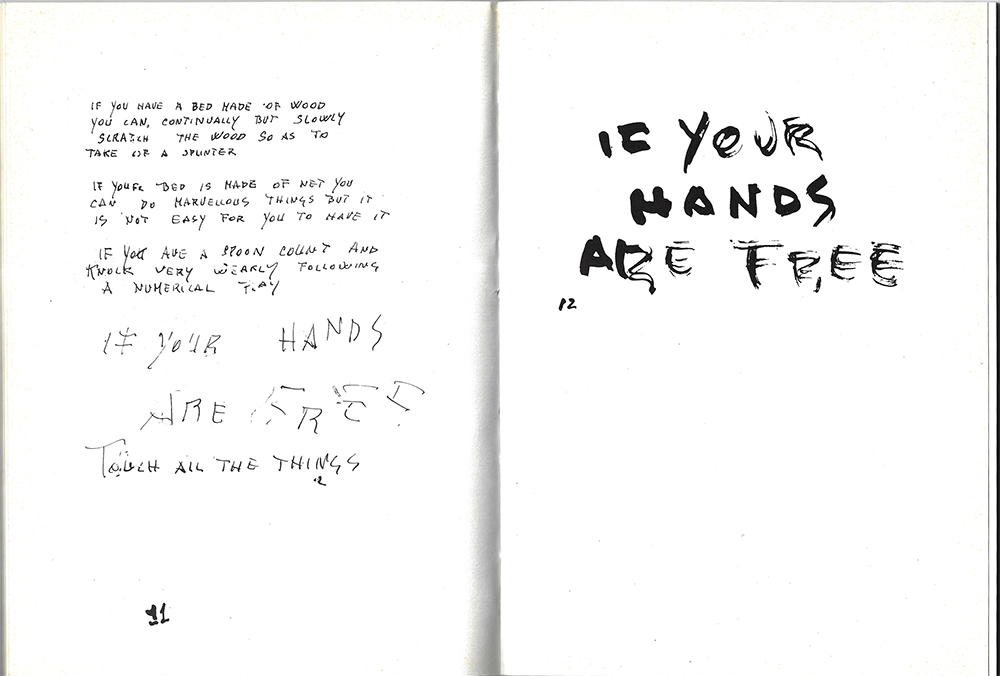 IF YOU HAVE A BED MADE OF WOOD
YOU CAN, CONTINUALLY BUT SLOWLY
SCRATCH THE WOOD SO AS TO
TAKE OF A SPLINTER
IF YOUR BED IS MADE OF NET YOU
CAN DO MARVELLOUS THINGS BUT IT
IS NOT EASY FOR YOU TO HAVE IT
IF YOU AVE A SPOON COUNT AND
KNOCK VERY WEAKLY FOLLOWING
A NUMERICAL PLAY
IF YOUR HANDS
ARE FREE
TOUCH ALL THE THINGS
12
11
IF YOUR
HANDS
ARE FREE
12